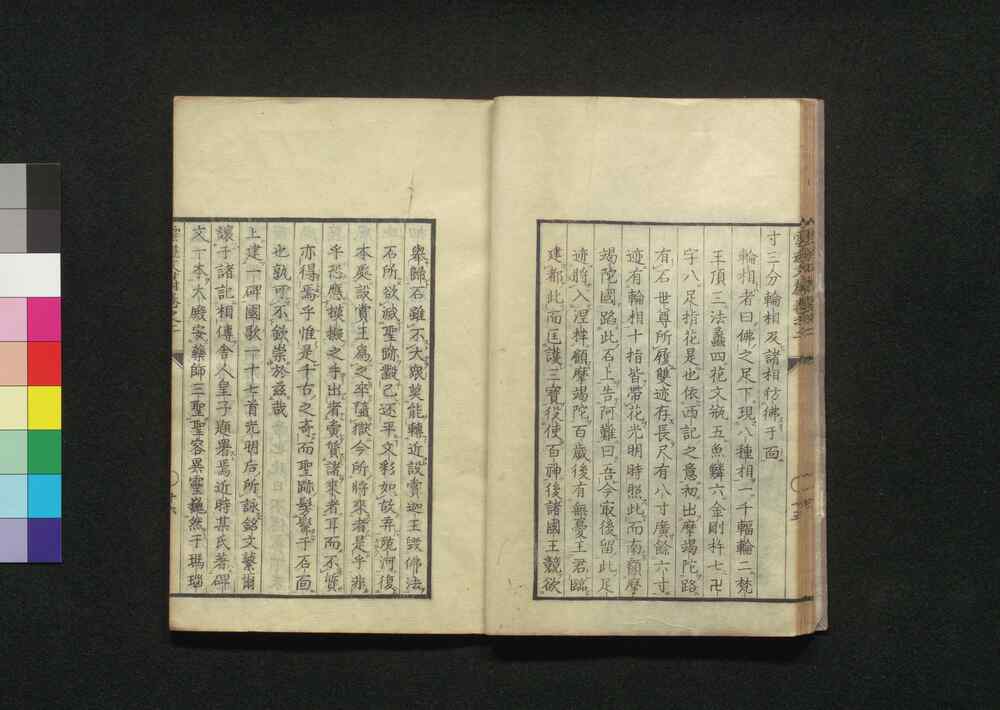 寸三分輪相及諸相彷彿于面
輪相者曰佛之足下現八種相一千輻輪二梵
王頂三法螽四花文瓶五魚鱗六金剛杵七卍
字八足指花是也依西記之意初出摩竭陀路
有石世尊所履雙迹存長尺有八寸廣餘六寸
迹有輪相十指皆帶花光明時照此而南顧摩
竭陀國蹈此石上告阿難曰吾今最後留此足
迹將入涅槃顧摩竭陀百歲後有無憂王君臨
建都此而匡護三寶役使百神後諸國王競欲
舉歸石雖不大衆莫能轉近設賞迦王毀佛法
石所欲滅聖跡鑿已還平文彩如故弃殑河復
本處設賞王爲之卒墮獄今所將來者是乎非
乎恐應模擬之乎出者賣贋諸來者耳而不質
亦得焉乎惟是千古之奇而聖跡髣髴于石面
也孰可不欽崇於茲哉
上建一碑國歌一十七首光明后所詠銘文蔡爾
讓于諸記相傳舍人皇子題署焉近時某氏著碑
文一本大殿安藥師三聖聖容異靈巍然于瑪瑙